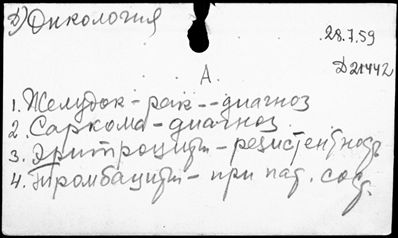 Д) Онкология
28.7.59
Д21442
А.
1. Желудок - рак - - диагноз
2. Саркома - диагноз
3. Эритроциты - резистентность
4. Тромбациты - при пат. сост.